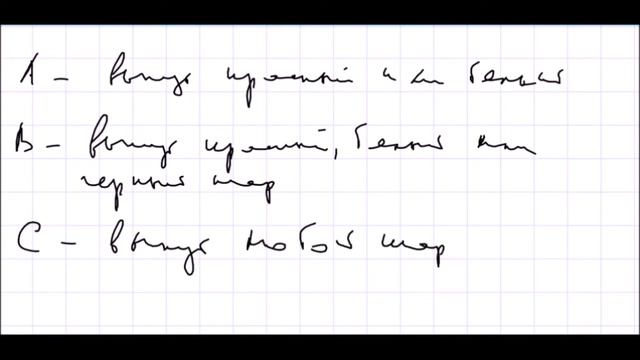 A – вынут красный или белый
B – вынут красный, белый или
черный шар
C – вынут любой шар